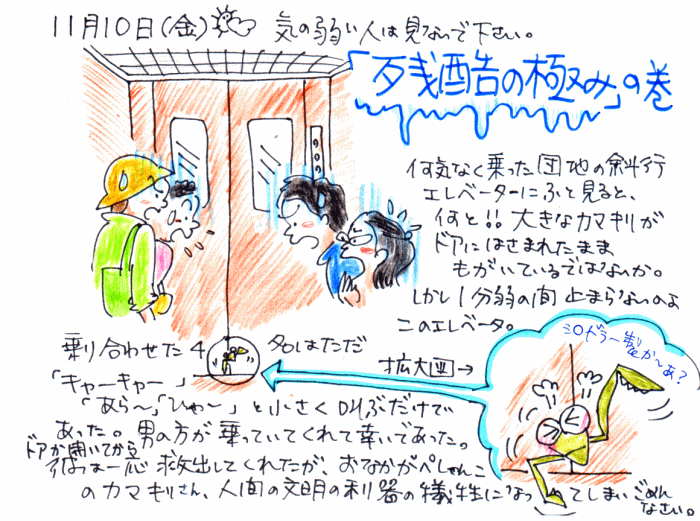 11月10日(金)
気の弱い人は見ないで下さい。
「残酷の極み」の巻
何気なく乗った団地の斜行
エレベーターにふと見ると、
何と!!大きなカマキリが
ドアにはさまれたまま
もがいているではないか。
しかし1分弱の間止まらないのよ
このエレベータ。
乗り合わせた4名はただ
「キャーキャー」
「あら〜」「ひゃ〜」と小さく叫ぶだけで
あった。男の方が乗っていてくれて幸いであった。
ドアが開いてから
一応救出してくれたが、おなかがぺしゃんこ
のカマキリさん、人間の文明の利器の犠牲になってしまいごめん
なさい。
拡大図→
ミロドラ〜製か〜あ?